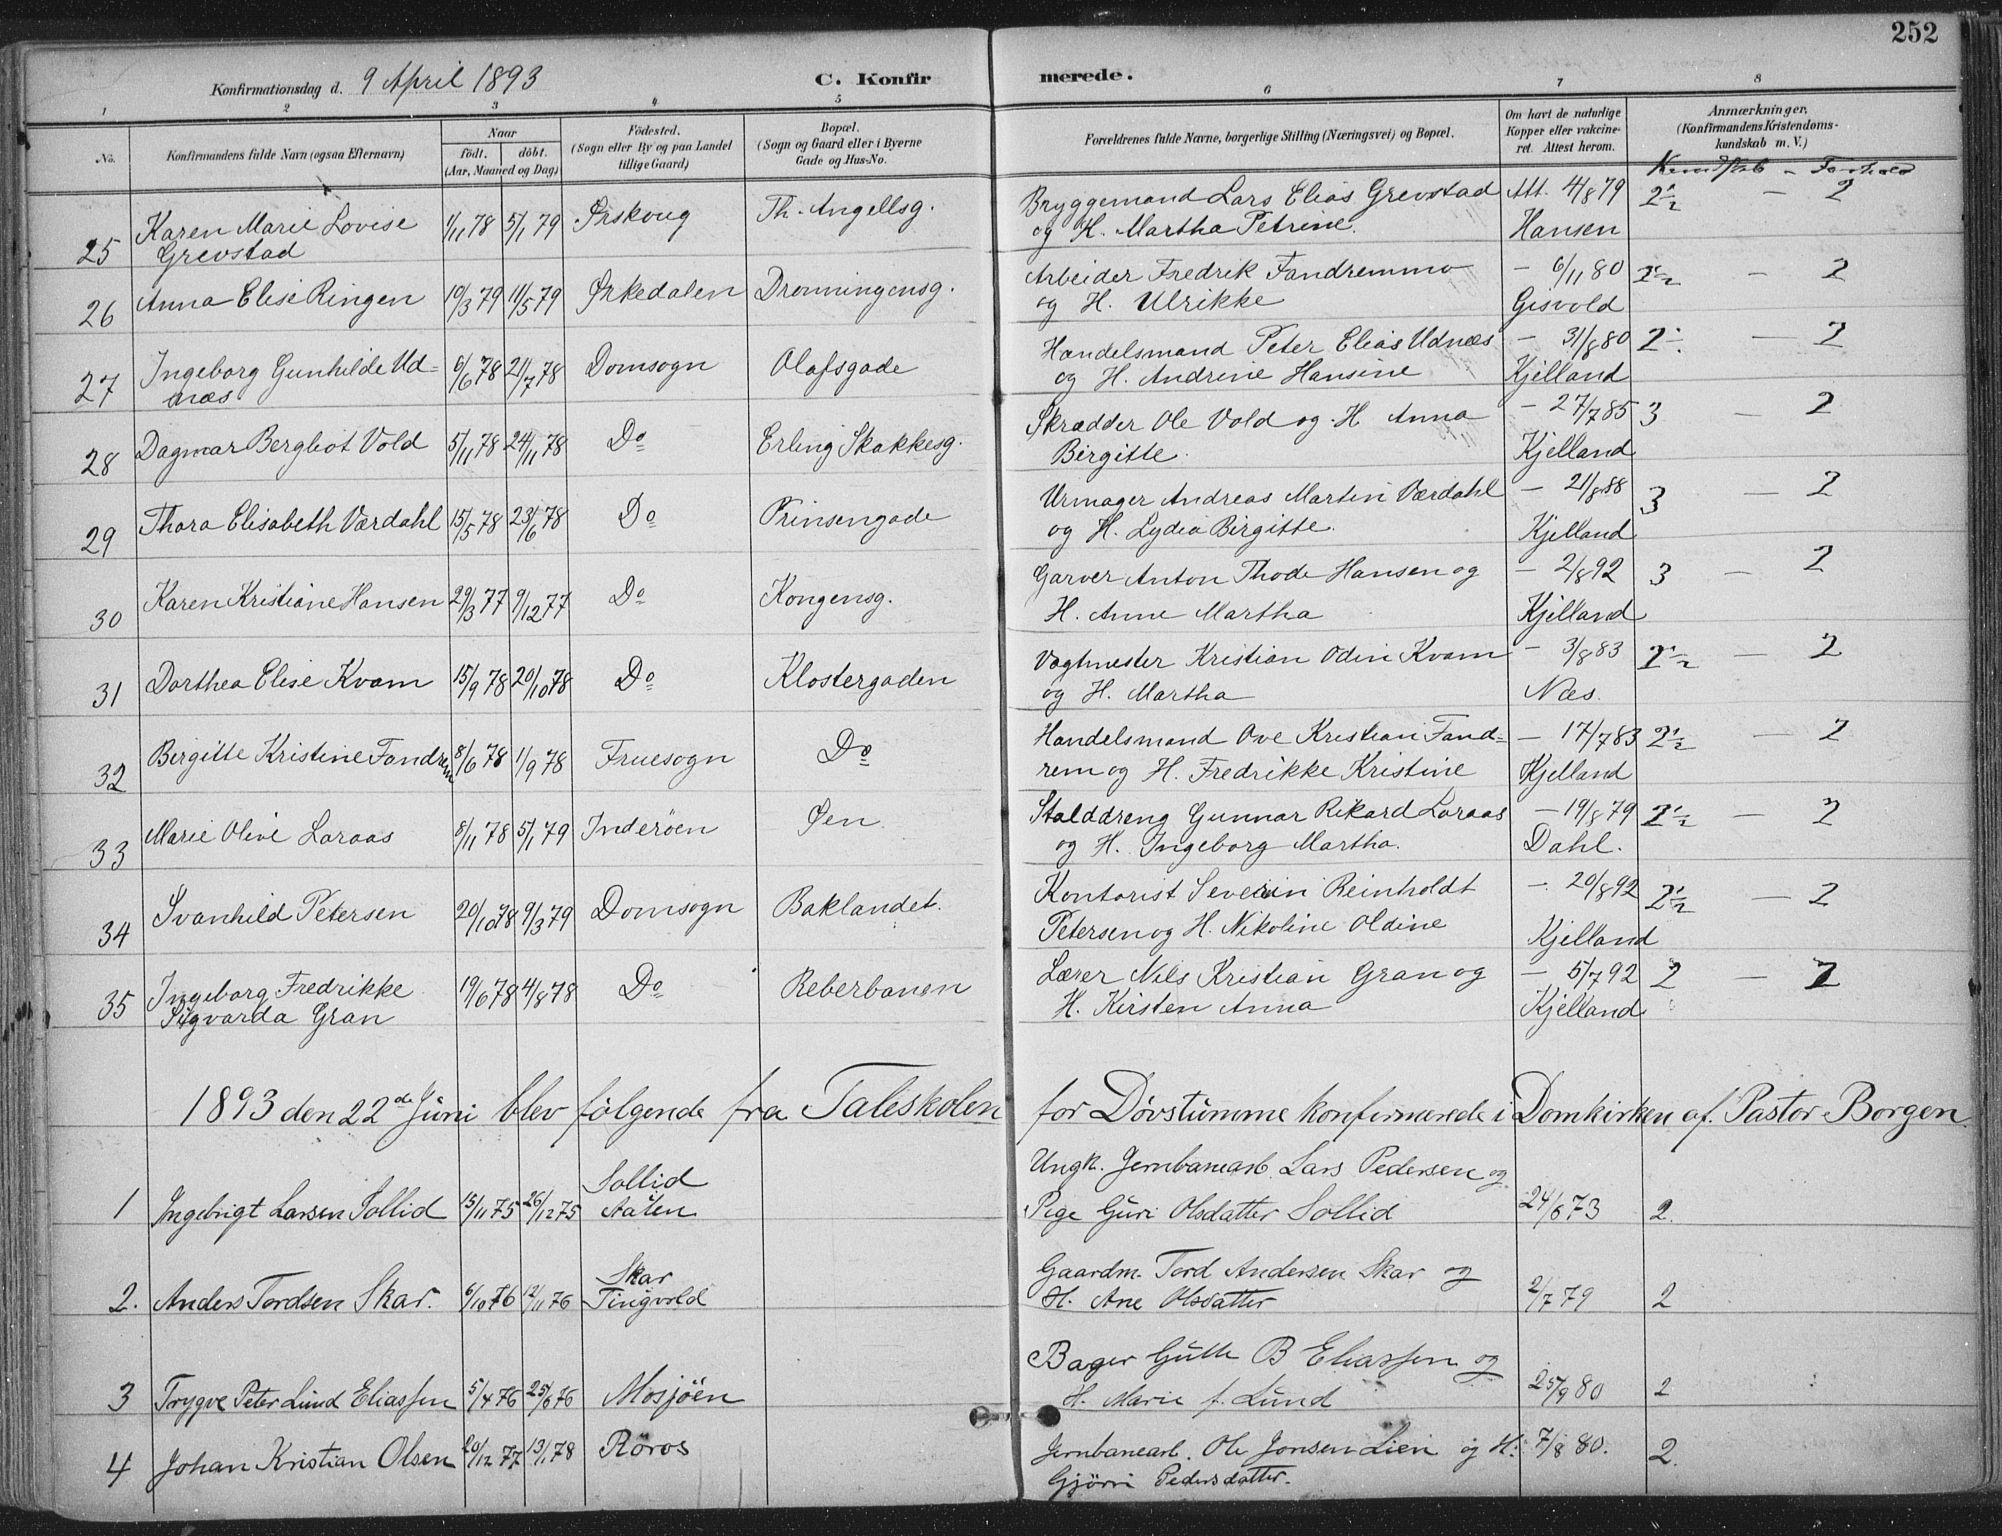 252
Konfirmationsdag d. 9 April 1893
C. Konfirmerede.
1 2 3 4 5 6 7 8
No. | Konfirmandens fulde Navn (ogsaa Efternavn) | Naar födt. döbt. (Aar, Maaned og Dag) | Födested. (Sogn eller By og paa Landet tillige Gaard) | Bopæl. (Sogn og Gaard eller i Byerne Gade og Hus-No. | Forældrenes fulde Navne, borgerlige Stilling (Næringsvei) og Bopæl. | Om havt de naturlige Kopper eller vaccineret. Attest herom. | Anmærkninger. (Konfirmandens Kristendomskundskab m. V.)
Kundskab - Forhold
25 Karen Marie Lovise | 1/11 78 | 5/1 79 | Ørskoug | Th. Angellsg. | Bryggemand Lars Elias Grevstad | Att. 4/8 79 | 2 1/2 - 2
Grevstad | og H. Martha Petrine. | Hansen
26 Anna Elise Ringen | 10/3 79 | 11/5 79 | Ørkedalen | Dronningensg. | Arbeider Fredrik Fandremmo | - 6/11 80 | 2 1/2 - 2
og H. Ulrikke | Gisvold
27 Ingeborg Gunhilde Ud= | 6/6 78 | 21/7 78 | Domsogn | Olafsgade | Handelsmand Peter Elias Udnæs | - 31/8 80 | 2 - 2
næs | og H. Andrine Hansine | Kjelland
28 Dagmar Bergliot Vold | 5/11 78 | 24/11 78 | Do | Erling Skakkesg. | Skrædder Ole Vold og H. Anna | - 27/7 85 | 3 - 2
Birgitte. | Kjelland
29 Thora Elisabeth Værdahl | 15/5 78 | 23/6 78 | Do | Prinsengade | Urmager Andreas Martin Værdahl | - 21/8 88 | 3 - 2
og H. Lydia Birgitte. | Kjelland
30 Karen Kristiane Hansen | 29/3 77 | 9/12 77 | Do | Kongensg. | Garver Anton Thode Hansen og | - 2/8 92 | 3 - 2
H. Anne Martha | Kjelland
31 Dorthea Elise Kvam | 15/9 78 | 20/10 78 | Do | Klostergaden | Vagtmester Kristian Odin Kvam | - 3/8 83 | 2 1/2 - 2
og H. Martha | Næs.
32 Birgitte Kristine Fandrem | 8/6 78 | 1/9 78 | Fruesogn | Do | Handelsmand Ove Kristian Fand= | - 17/7 83 | 2 1/2 - 2
rem og H. Fredrikke Kristine | Kjelland
33 Marie Olive Loraas | 8/11 78 | 5/1 79 | Inderöen | Øen | Stalddreng Gunnar Rikard Loraas | - 19/8 79 | 2 1/2 - 2
og H. Ingeborg Martha. | Dahl.
34 Svanhild Petersen | 20/10 78 | 9/3 79 | Domsogn | Baklandet. | Kontorist Severin Reinholdt | - 20/8 92 | 2 1/2 - 2
Petersen og H. Nikoline Oldine | Kjelland
35 Ingeborg Fredrikke | 19/6 78 | 4/8 78 | Do | Reberbanen | Lærer Nils Kristian Gran og | - 5/7 92 | 2 - 2
Sigvarda Gran | H. Kirsten Anna | Kjelland
1893 den 22de Juni blev følgende fra Taleskolen for Døvstumme konfirmerede i Domkirken af Pastor Borgen.
Sollid | Ungk. Jernbanearb. Lars Pedersen og
1 Ingebrigt Larsen Sollid | 15/11 75 | 26/12 75 | Aalen | Pige Guri Olsdatter Sollid | 24/6 73 | 2.
Skar | Gaardm. Tord Andersen Skar og
2. Anders Tordsen Skar. | 6/10 76 | 12/11 76 | Tingvold | H. Ane Olsdatter | 2/7 79 | 2
Bager Guth B Eliassen og
3 Trygve Peter Lund Eliassen | 5/4 76 | 25/6 76 | Mosjöen | H. Marie f. Lund | 25/9 80 | 2
4 Johan Kristian Olsen | 20/12 77 | 13/1 78 | Röros | Jernbanearb. Ole Jonsen Lien og H. | 7/8 80. | 2.
Gjöri Pedersdatter.